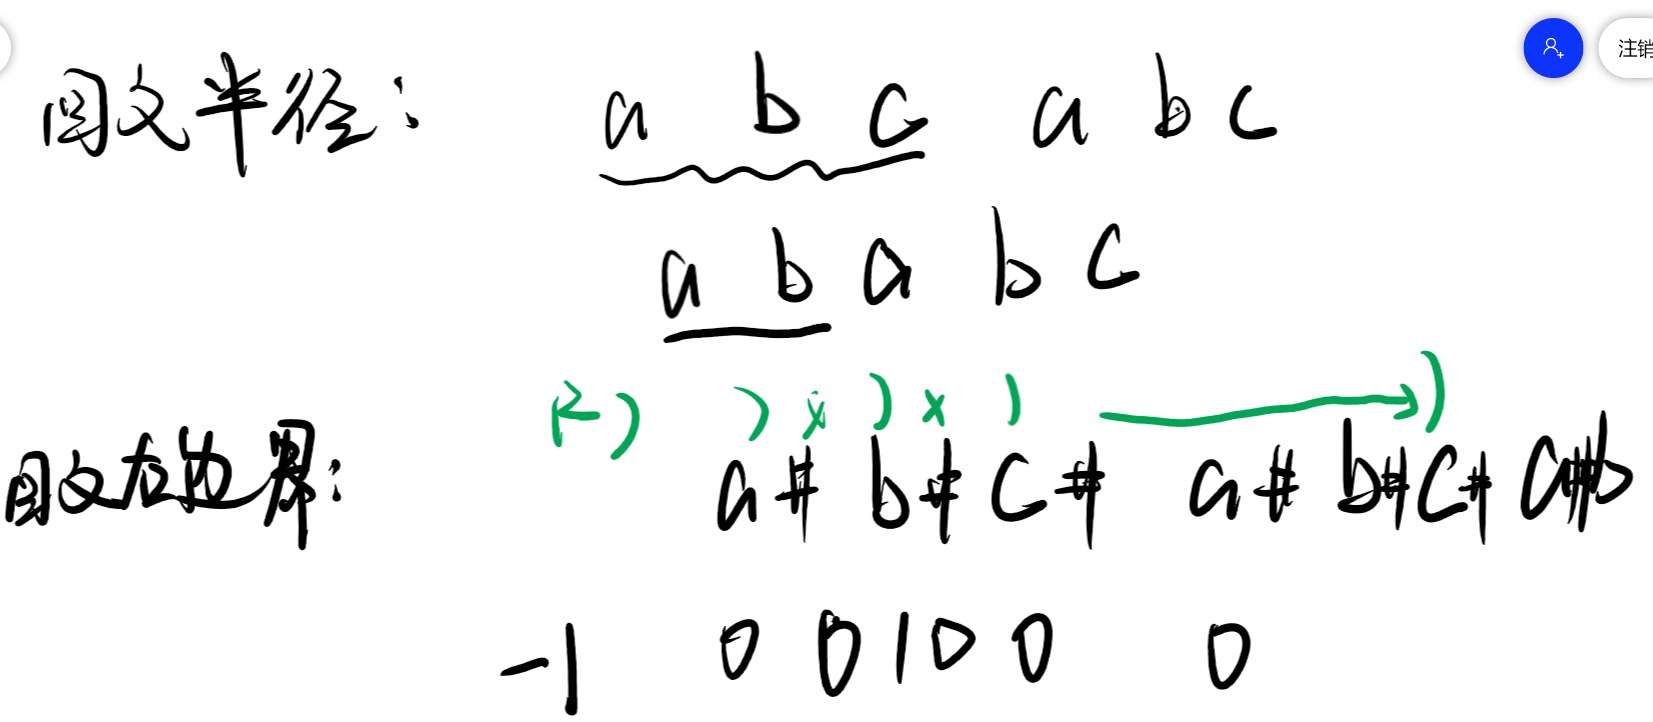 注销
回文半径: a b c a b c
a b a b c
R) ) x ) x ) )
回文右边界: a # b # c # a # b # c # a # b
-1 0 0 1 0 0 0